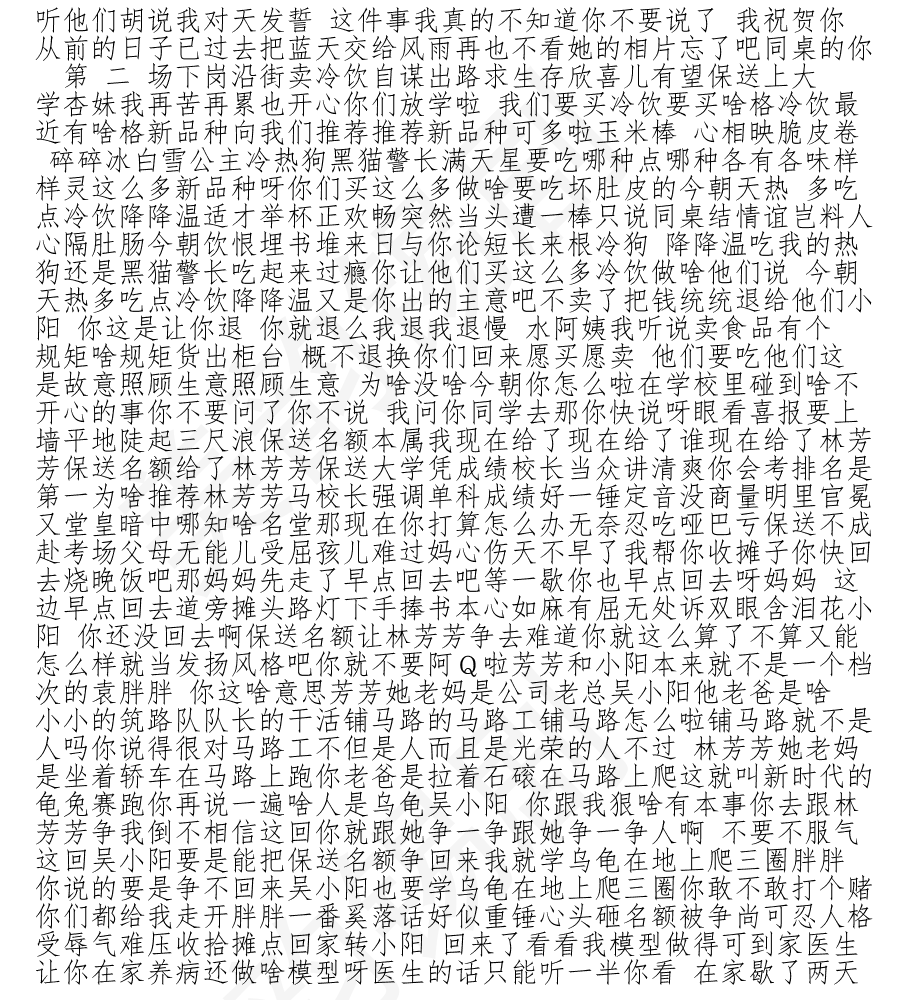 听他们胡说我对天发誓 这件事我真的不知道你不要说了 我祝贺你
从前的日子已过去把蓝天交给风雨再也不看她的相片忘了吧同桌的你
第 二 场下岗沿街卖冷饮自谋出路求生存欣喜儿有望保送上大
学杏妹我再苦再累也开心你们放学啦 我们要买冷饮要买啥格冷饮最
近有啥格新品种向我们推荐推荐新品种可多啦玉米棒 心相映脆皮卷
碎碎冰白雪公主冷热狗黑猫警长满天星要吃哪种点哪种各有各味样
样灵这么多新品种呀你们买这么多做啥要吃坏肚皮的今朝天热 多吃
点冷饮降降温适才举杯正欢畅突然当头遭一棒只说同桌结情谊岂料人
心隔肚肠今朝饮恨埋书堆来日与你论短长来根冷狗 降降温吃我的热
狗还是黑猫警长吃起来过瘾你让他们买这么多冷饮做啥他们说 今朝
天热多吃点冷饮降降温又是你出的主意吧不卖了把钱统统退给他们小
阳 你这是让你退 你就退么我退我退慢 水阿姨我听说卖食品有个
规矩啥规矩货出柜台 概不退换你们回来愿买愿卖 他们要吃他们这
是故意照顾生意照顾生意 为啥没啥今朝你怎么啦在学校里碰到啥不
开心的事你不要问了你不说 我问你同学去那你快说呀眼看喜报要上
墙平地陡起三尺浪保送名额本属我现在给了现在给了谁现在给了林芳
芳保送名额给了林芳芳保送大学凭成绩校长当众讲清爽你会考排名是
第一为啥推荐林芳芳马校长强调单科成绩好一锤定音没商量明里官冕
又堂皇暗中哪知啥名堂那现在你打算怎么办无奈忍吃哑巴亏保送不成
赴考场父母无能儿受屈孩儿难过妈心伤天不早了我帮你收摊子你快回
去烧晚饭吧那妈妈先走了早点回去吧等一歇你也早点回去呀妈妈 这
边早点回去道旁摊头路灯下手捧书本心如麻有屈无处诉双眼含泪花小
阳 你还没回去啊保送名额让林芳芳争去难道你就这么算了不算又能
怎么样就当发扬风格吧你就不要阿Q啦芳芳和小阳本来就不是一个档
次的袁胖胖 你这啥意思芳芳她老妈是公司老总吴小阳他老爸是啥
小小的筑路队队长的干活铺马路的马路工铺马路怎么啦铺马路就不是
人吗你说得很对马路工不但是人而且是光荣的人不过 林芳芳她老妈
是坐着轿车在马路上跑你老爸是拉着石磙在马路上爬这就叫新时代的
龟兔赛跑你再说一遍啥人是乌龟吴小阳 你跟我狠啥有本事你去跟林
芳芳争我倒不相信这回你就跟她争一争跟她争一争人啊 不要不服气
这回吴小阳要是能把保送名额争回来我就学乌龟在地上爬三圈胖胖
你说的要是争不回来吴小阳也要学乌龟在地上爬三圈你敢不敢打个赌
你们都给我走开胖胖一番奚落话好似重锤心头砸名额被争尚可忍人格
受辱气难压收拾摊点回家转小阳 回来了看看我模型做得可到家医生
让你在家养病还做啥模型呀医生的话只能听一半你看 在家歇了两天